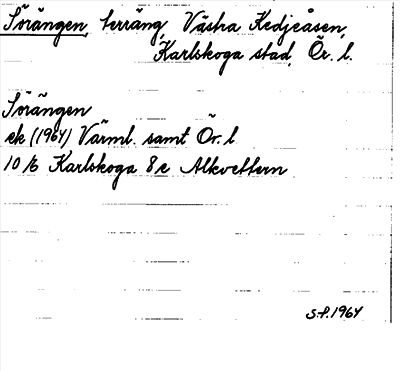 Sörängen, terräng, Västra Kedjeåsen,
Karlskoga stad, Ör. l.
Sörängen
ek (1964) Värml. samt Ör. l
10/6 Karlskoga 8e Alkvettern
S.P. 1964